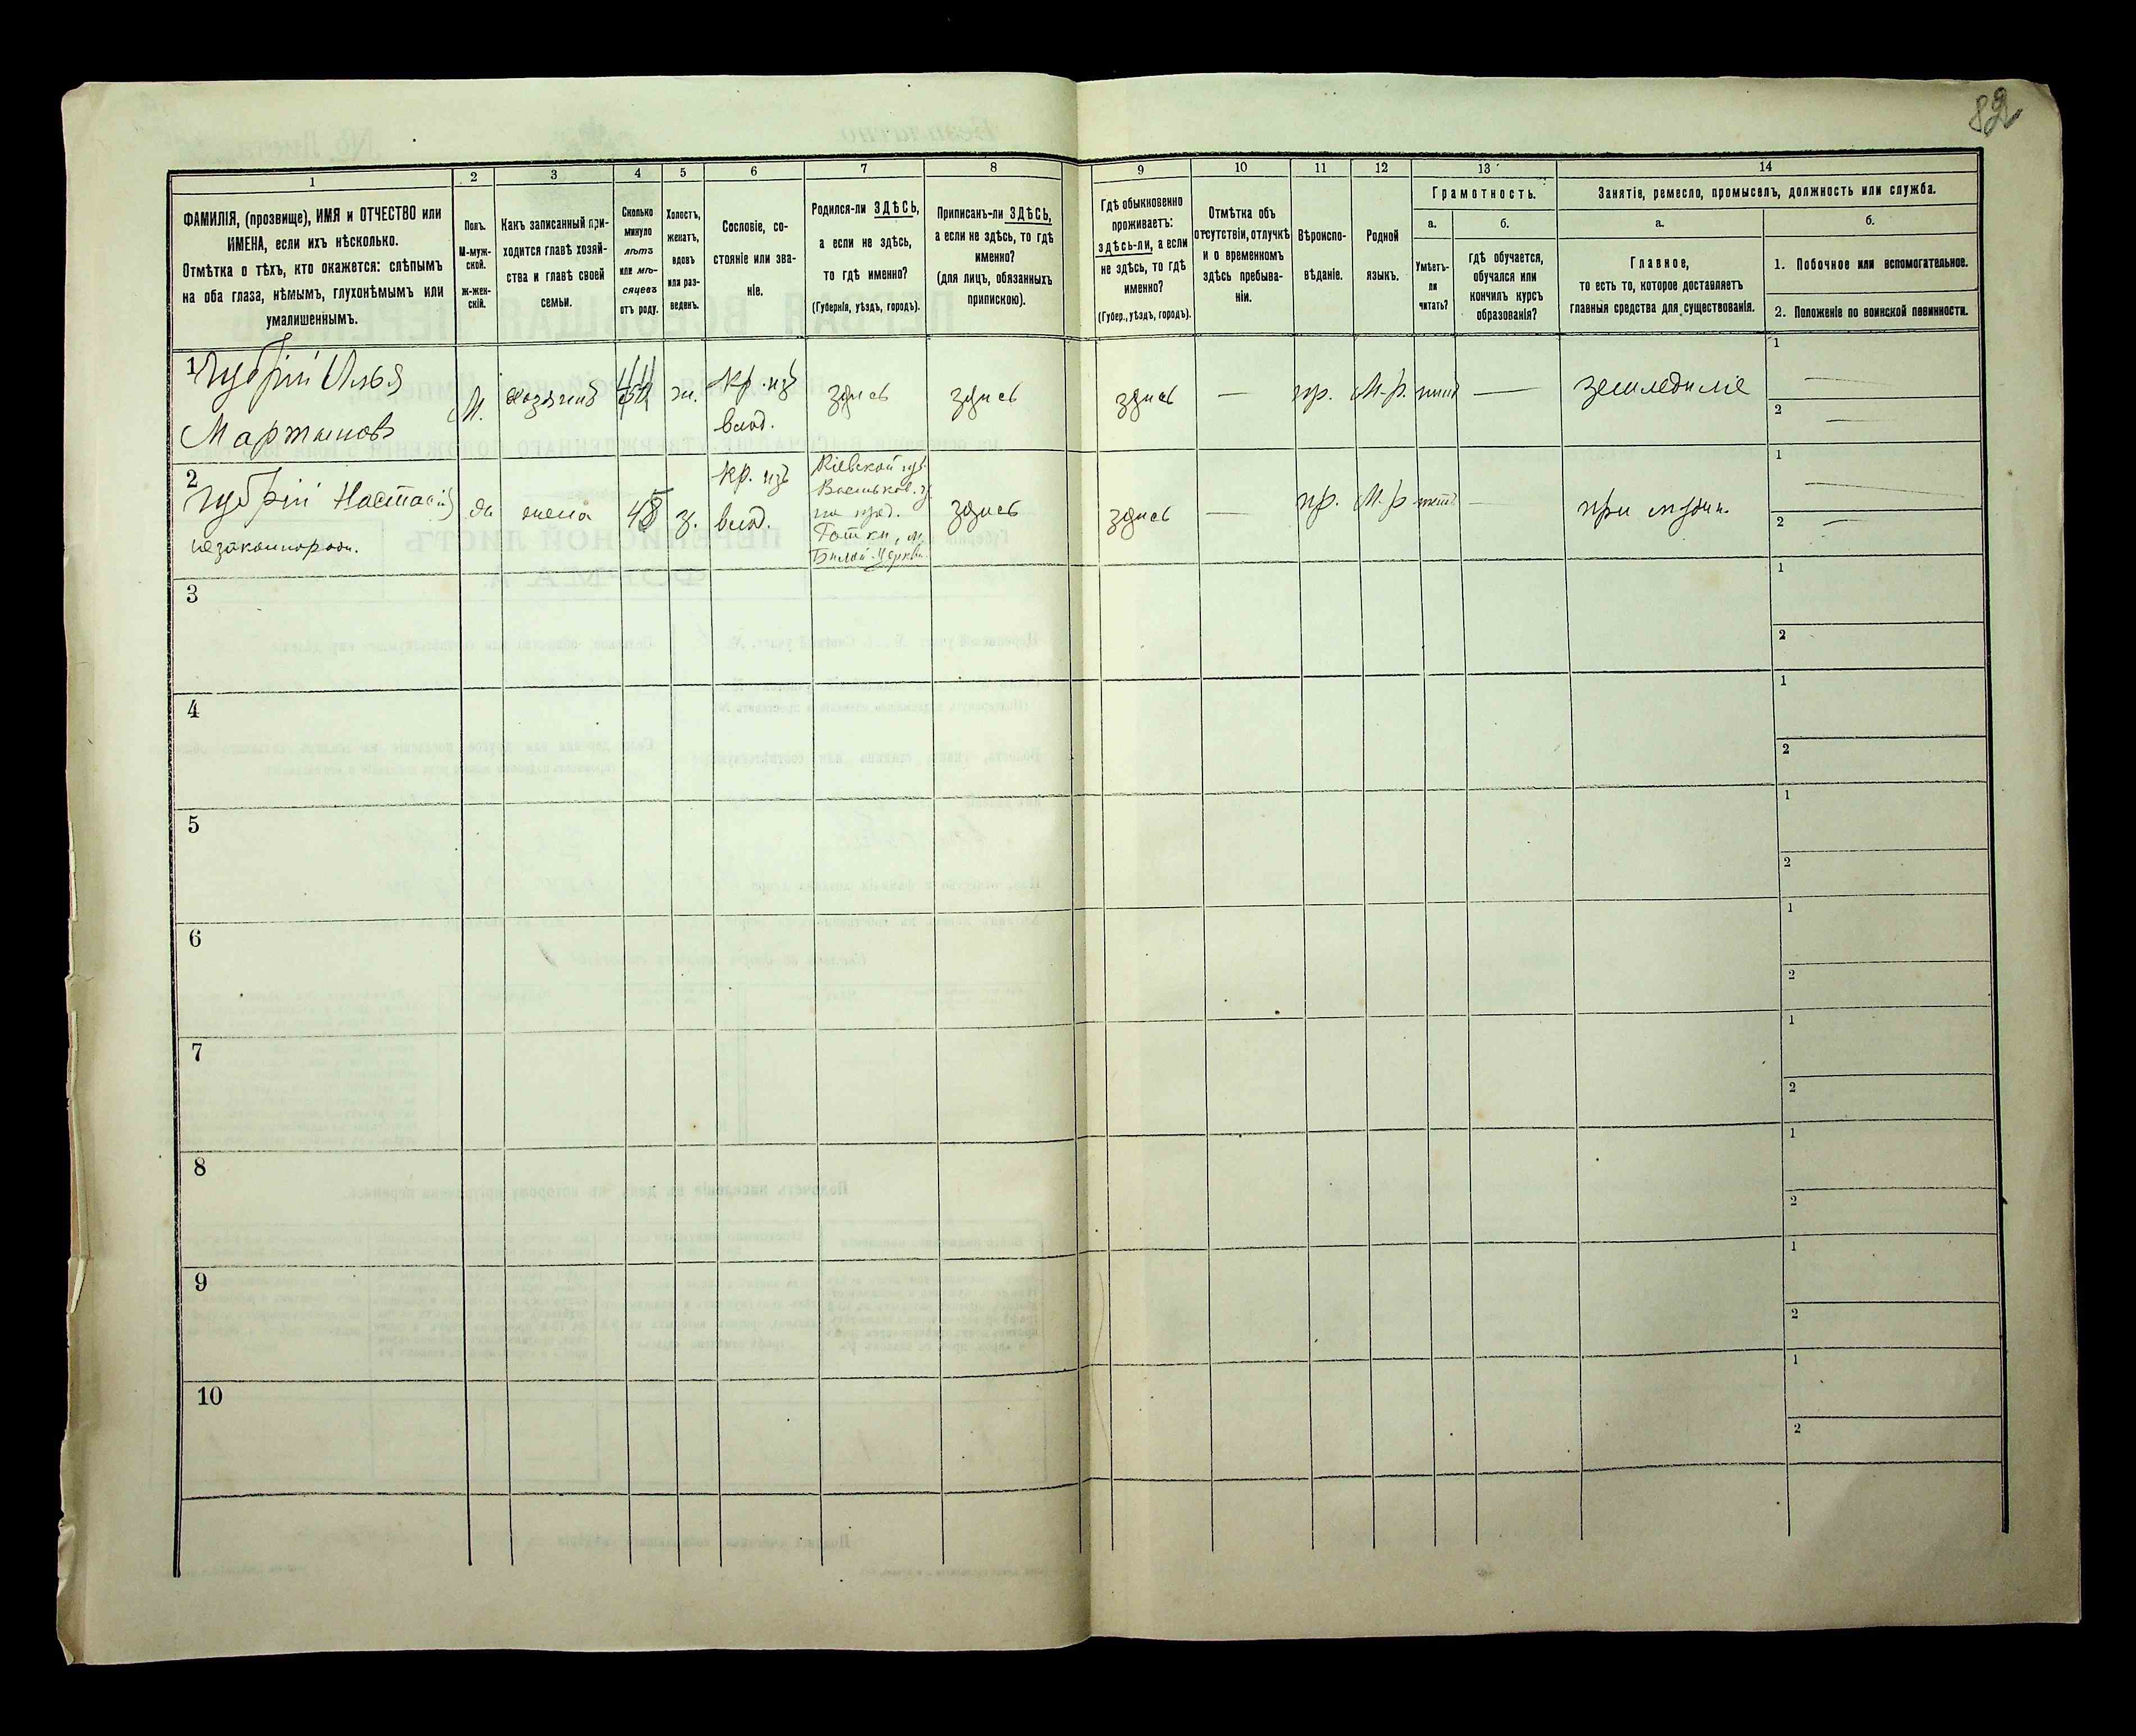 82
1
2
3
4
5
6
7
8
9
10
11
12
13
14
ФАМИЛІЯ, (прозвище), ИМЯ и ОТЧЕСТВО или
ИМЕНА, если ихъ нѣсколько.
Отмѣтка о тѣхъ, кто окажется: слѣпымъ
на оба глаза, нѣмымъ, глухонѣмымъ или
умалишеннымъ.
Полъ.
М-муж-
ской.
ж-жен-
скій.
Какъ записанный при-
ходится главѣ хозяй-
ства и главѣ своей
семьи.
Сколько
минуло
лѣтъ
или мѣ-
сяцевъ
отъ роду.
Холостъ,
женатъ,
вдовъ
или раз-
веденъ.
Сословіе, со-
стояніе или зва-
ніе.
Родился-ли ЗДѢСЬ,
а если не здѣсь,
то гдѣ именно?
(Губернія, уѣздъ, городъ).
Приписанъ-ли ЗДѢСЬ,
а если не здѣсь, то гдѣ
именно?
(для лицъ, обязанныхъ
припискою).
Гдѣ обыкновенно
проживаетъ:
здѣсь-ли, а если
не здѣсь, то гдѣ
именно?
(Губер., уѣздъ, городъ).
Отмѣтка объ
отсутствіи, отлучкѣ
и о временномъ
здѣсь пребыва-
ніи.
Вѣроиспо-
вѣданіе.
Родной
языкъ.
Грамотность.
а.
Умѣетъ-
ли
читать?
б.
гдѣ обучается,
обучался или
кончилъ курсъ
образованія?
Занятіе, ремесло, промыселъ, должность или служба.
а.
Главное,
то есть то, которое доставляетъ
главныя средства для существованія.
б.
1. Побочное или вспомогательное.
2. Положеніе по воинской повинности.
1
Чубрій Илья
Мартыновъ
М.
хозяинъ
ж.
кр. изъ
влад.
здѣсь
здѣсь
здѣсь
—
пр.
М-р.
—
земледѣліе
1 —
2 —
2
Чубрій Настасія
незаконнорожд.
жена
з.
кр. изъ
влад.
Кіевской губ.
Васильков. у.
Бѣлой-Церкви.
здѣсь
здѣсь
—
пр.
М-р
—
при мужѣ.
1
2 —
3
1
2
4
1
2
5
1
2
6
1
2
7
1
2
8
1
2
9
1
2
10
1
2